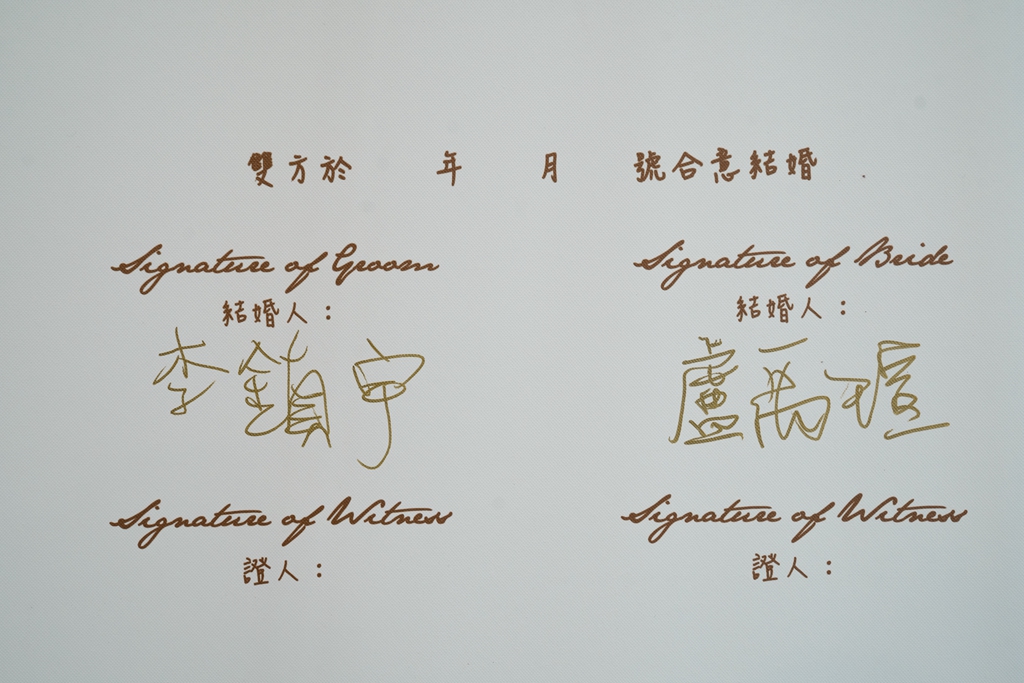 雙方於 年 月 號合意結婚
Signature of Groom Signature of Bride
結婚人: 結婚人:
李鎮宇 盧禹瑄
Signature of Witness Signature of Witness
證人: 證人: